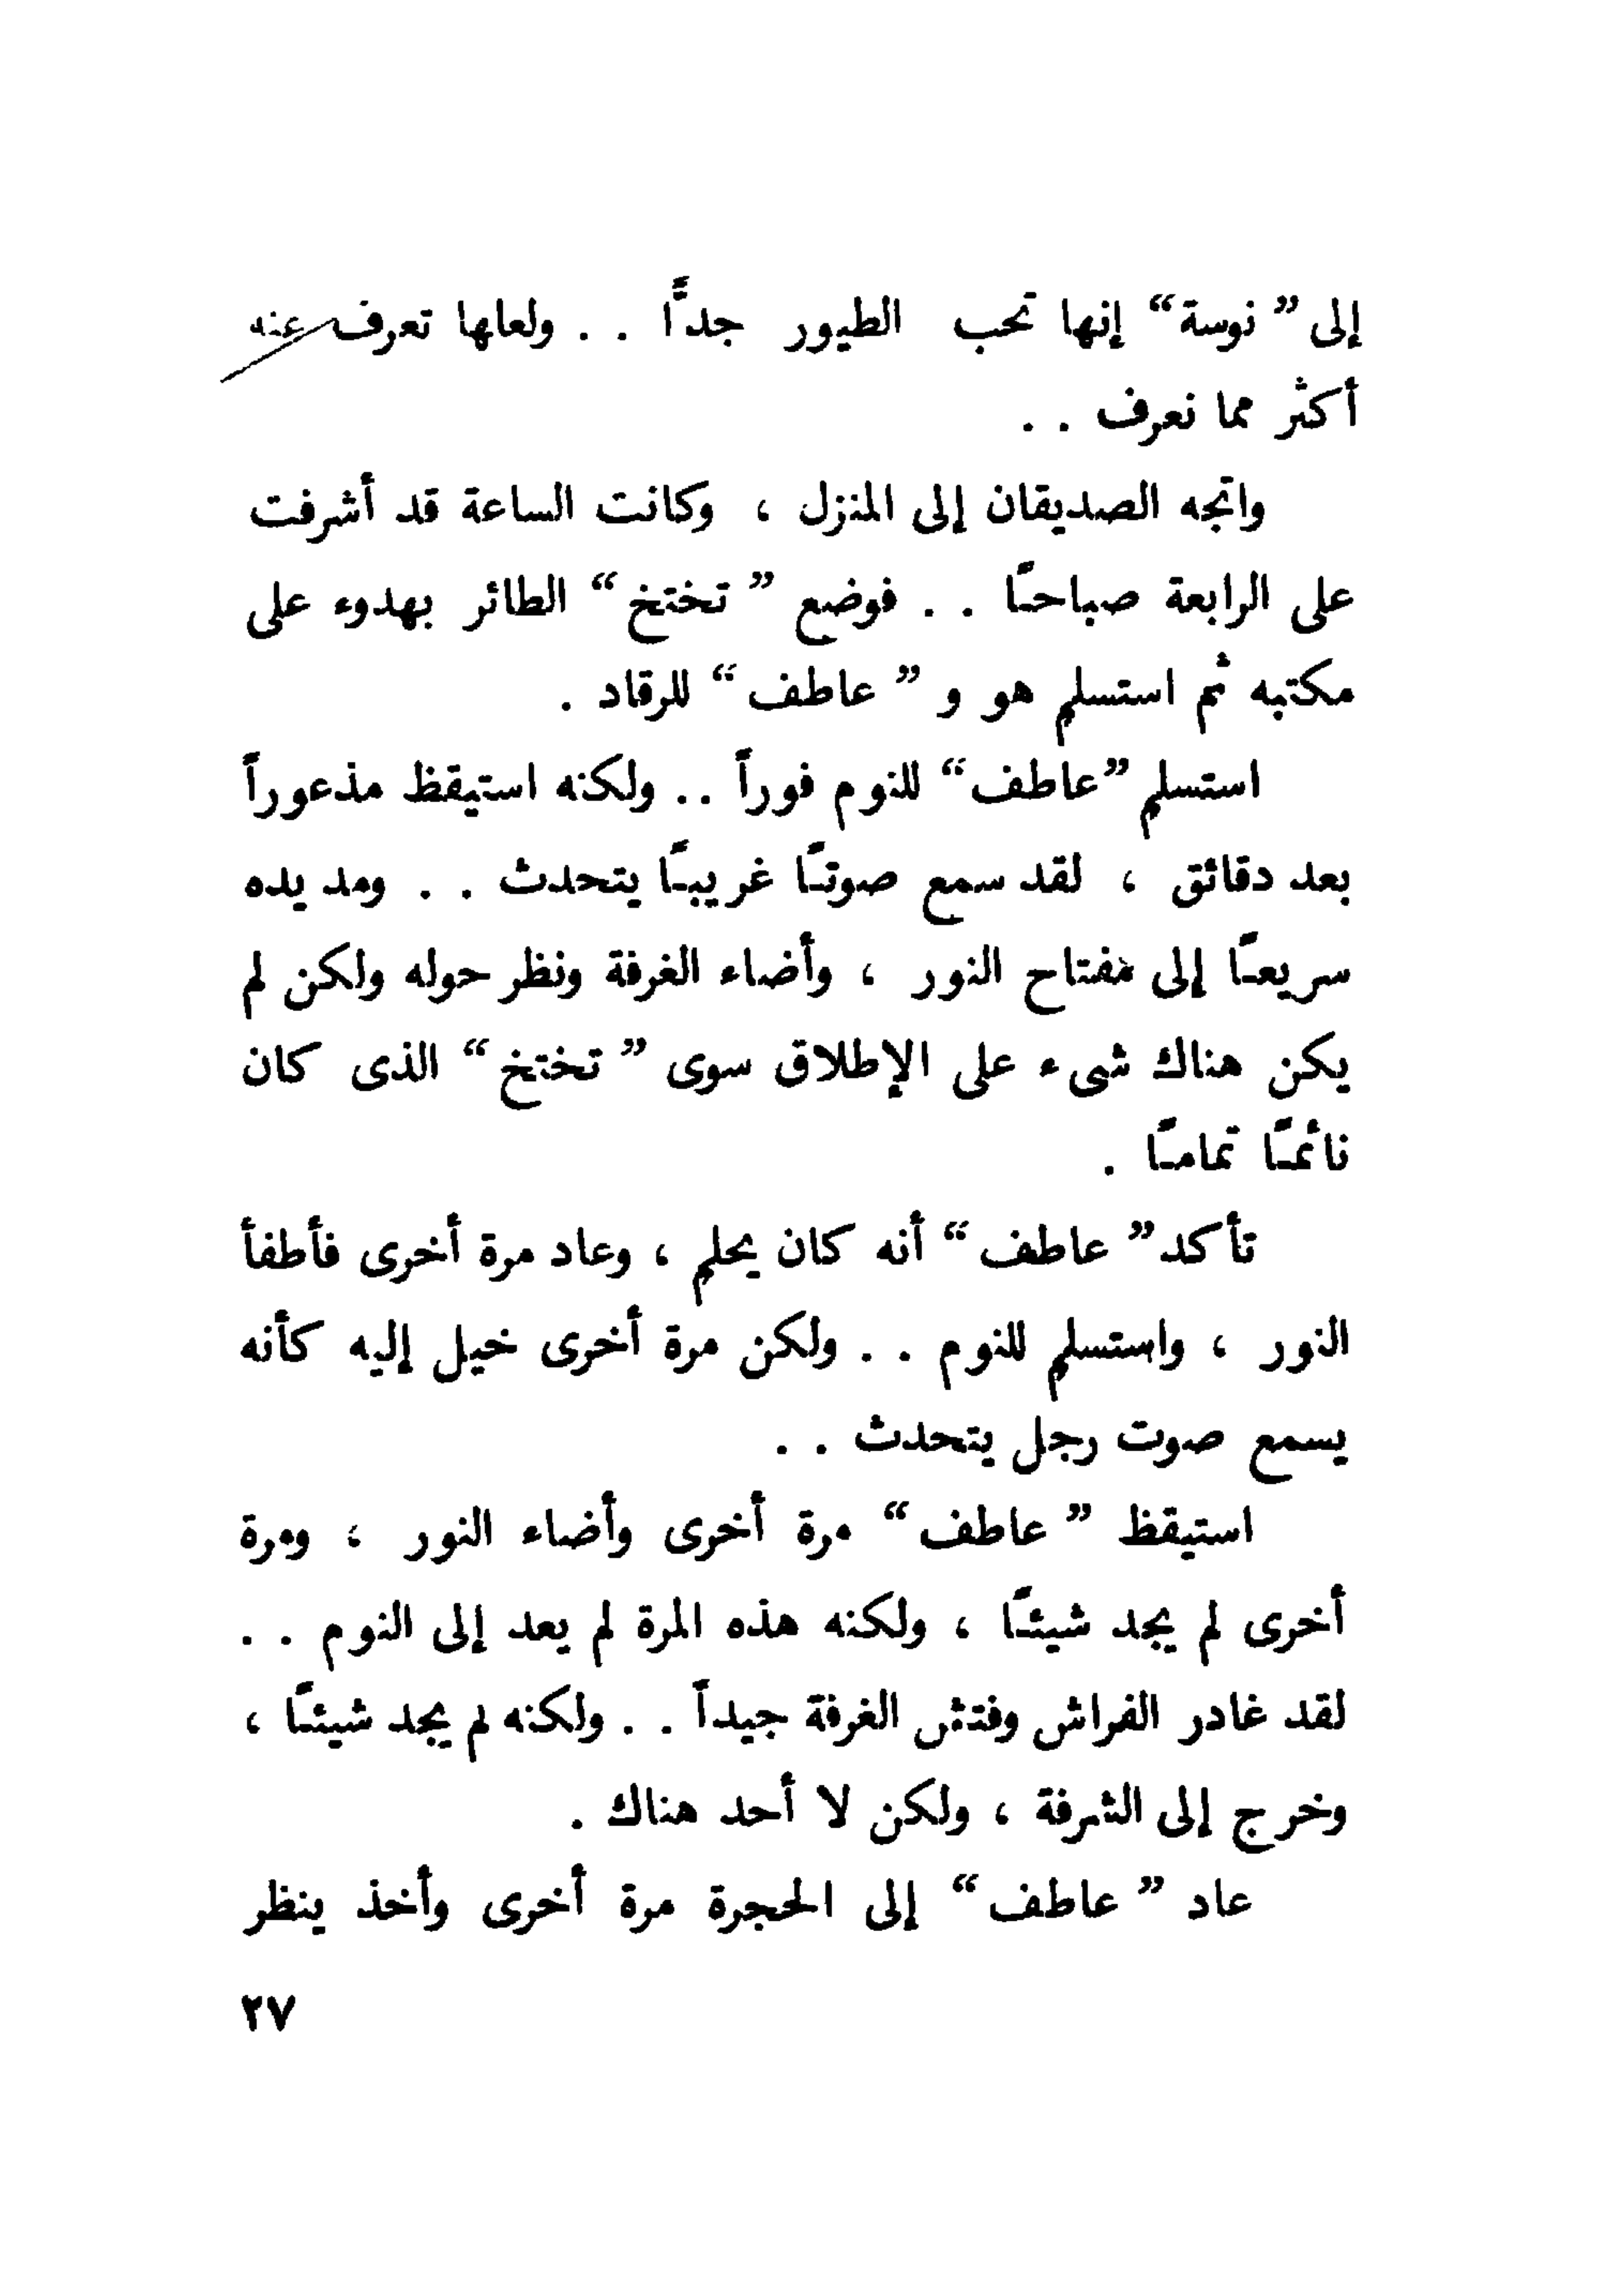 إلى ” نوسة “ إنها تحب الطيور جدًّا . . ولعلها تعرف عنه
أكثر مما نعرف . .
واتجه الصديقان إلى المنزل ، وكانت الساعة قد أشرفت
على الرابعة صباحـًا . . فوضع ” تختخ “ الطائر بهدوء على
مكتبه ثم استسلم هو و ” عاطف “ للرقاد .
استسلم ”عاطف“ للنوم فوراً . . ولكنه استيقظ مذعوراً
بعد دقائق ، لقد سمع صوتـًا غريبـًا يتحدث . . ومد يده
سريعـًا إلى مفتاح النور ، وأضاء الغرفة ونظر حوله ولكن لم
يكن هناك شىء على الإطلاق سوى ” تختخ “ الذى كان
نائمـًا تمامـًا .
تأكد ” عاطف “ أنه كان يحلم ، وعاد مرة أخرى فأطفأ
النور ، واستسلم للنوم . . ولكن مرة أخرى خيل إليه كأنه
يسمع صوت رجل يتحدث . .
استيقظ ” عاطف “ مرة أخرى وأضاء النور ، ومرة
أخرى لم يجد شيئـًا ، ولكنه هذه المرة لم يعد إلى النوم . .
لقد غادر الفراش وفتش الغرفة جيداً . . ولكنه لم يجد شيئـًا ،
وخرج إلى الشرفة ، ولكن لا أحد هناك .
عاد ” عاطف “ إلى الحجرة مرة أخرى وأخذ ينظر
٢٧